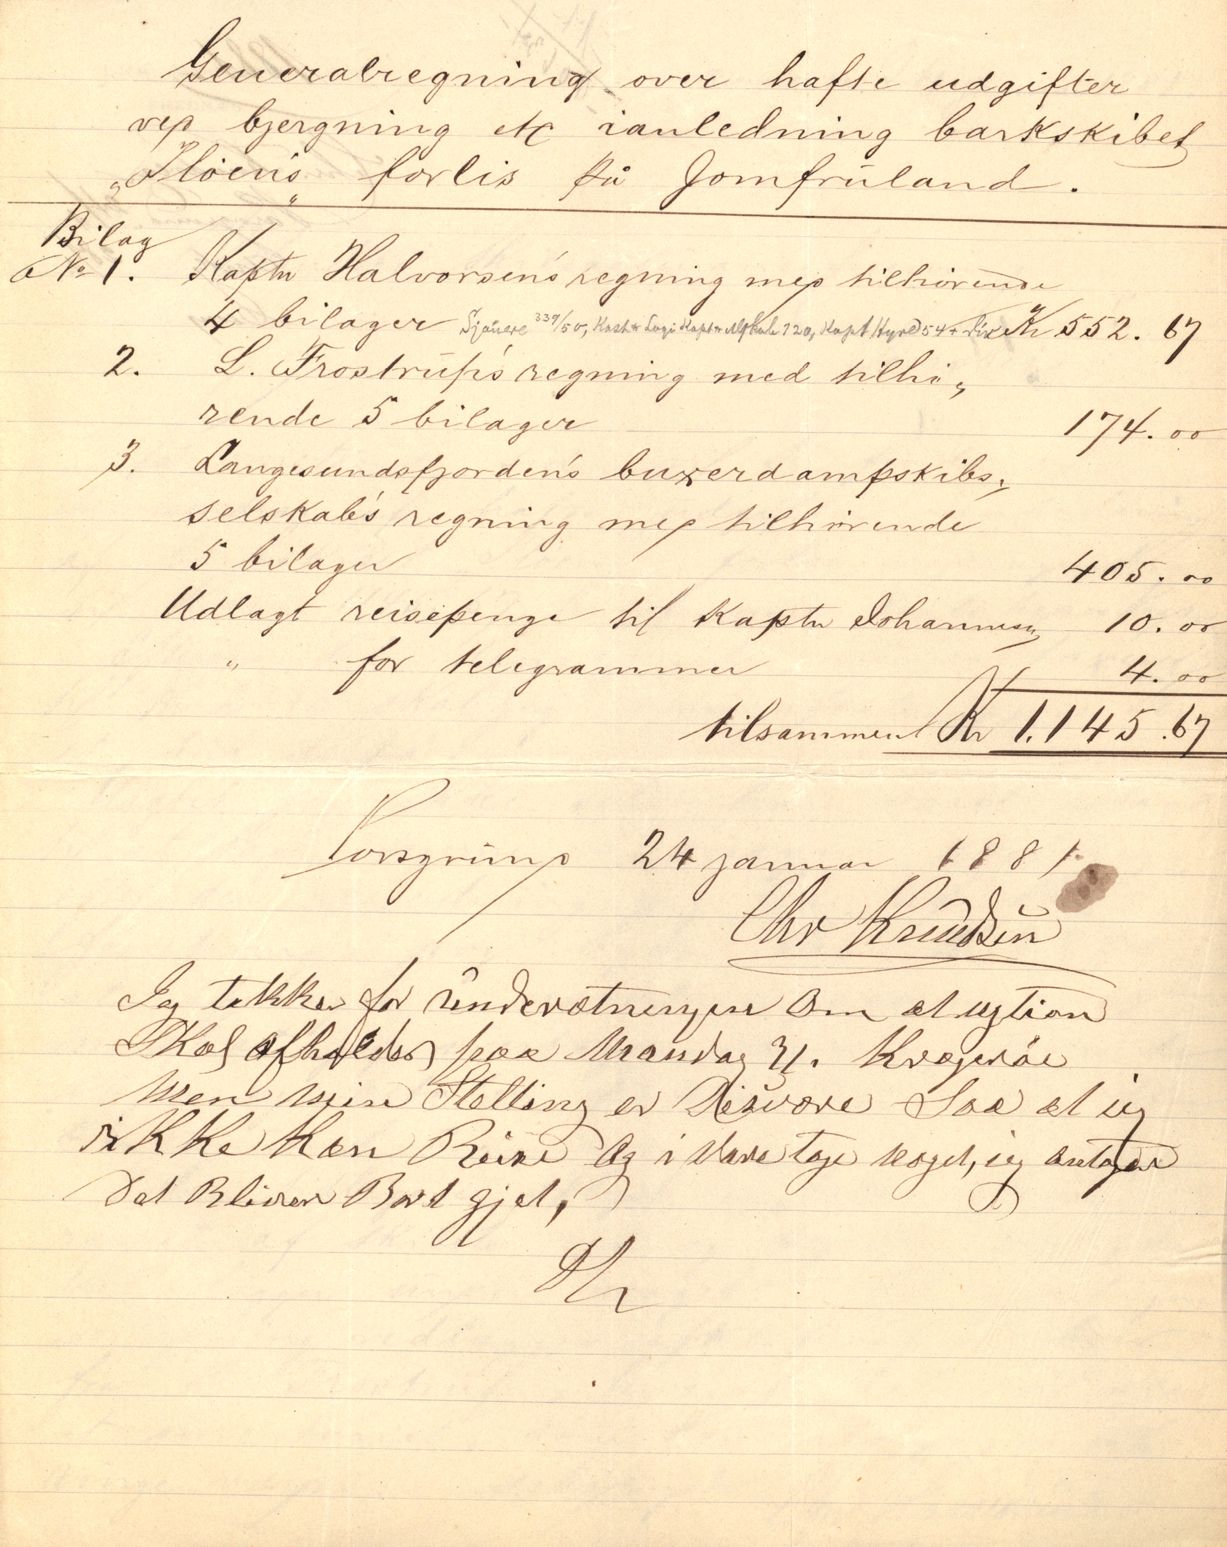 Generalregning over hafte udgifter
ved bjergning etc ianledning barkskibet
„Iloen's" forlis på Jomfruland.
Bilag
No 1. Kaptn Halvorsen's regning med tilhörende
4 bilager Kr 552.67
2. L. Frostrup's regning med tilhö„
rende 5 bilager 174.00
3. Langesundsfjorden's buxerdampskibs„
selskab's regning med tilhörende
5 bilager 405.00
Udlagt reisepenge til Kaptn Johannesen 10.00
" for telegrammer 4.00
tilsammen Kr 1.145.67
Porsgrund 24 januar 1881.
Chr Knudsen
Jeg takker for underætningen Om at
Skal afholdes paa Mandag 31. Krageröe
Men min Stelling er Disvære Saa at jeg
ikke kan Reise Og i vare tage noget, jeg antager
Dat Bliver Bort gjet,